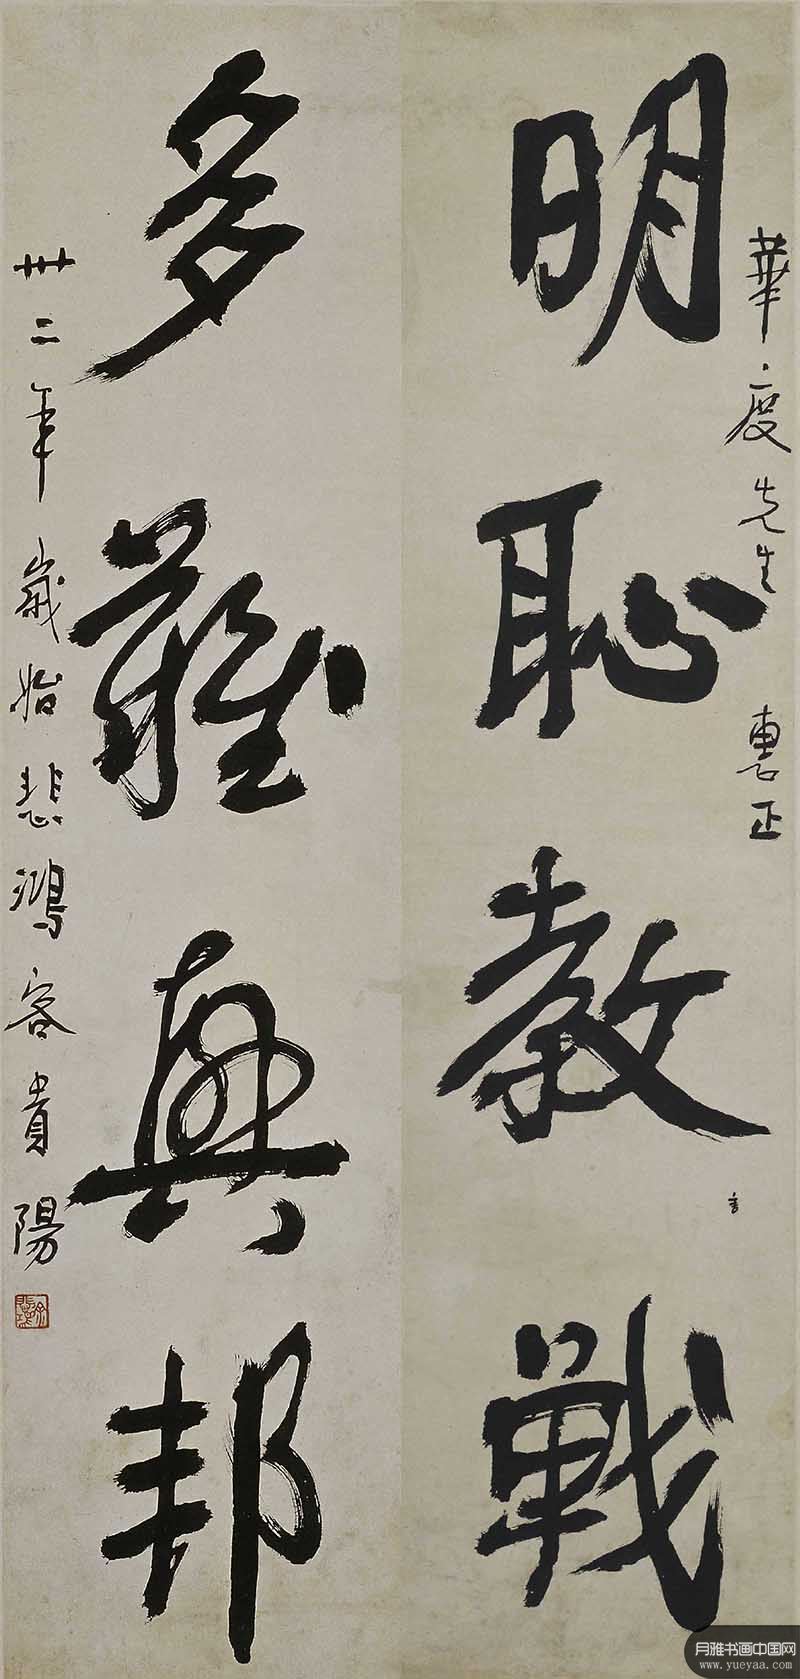 華度先生 惠正
明恥教戰
多難興邦
卅二年歲始悲鴻客貴陽
月雅书画中国网
www.yueyaa.com